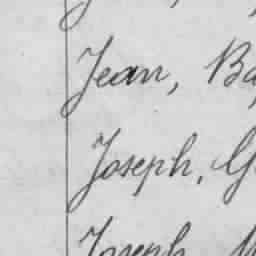 Jean, Ba
Joseph, G
Joseph